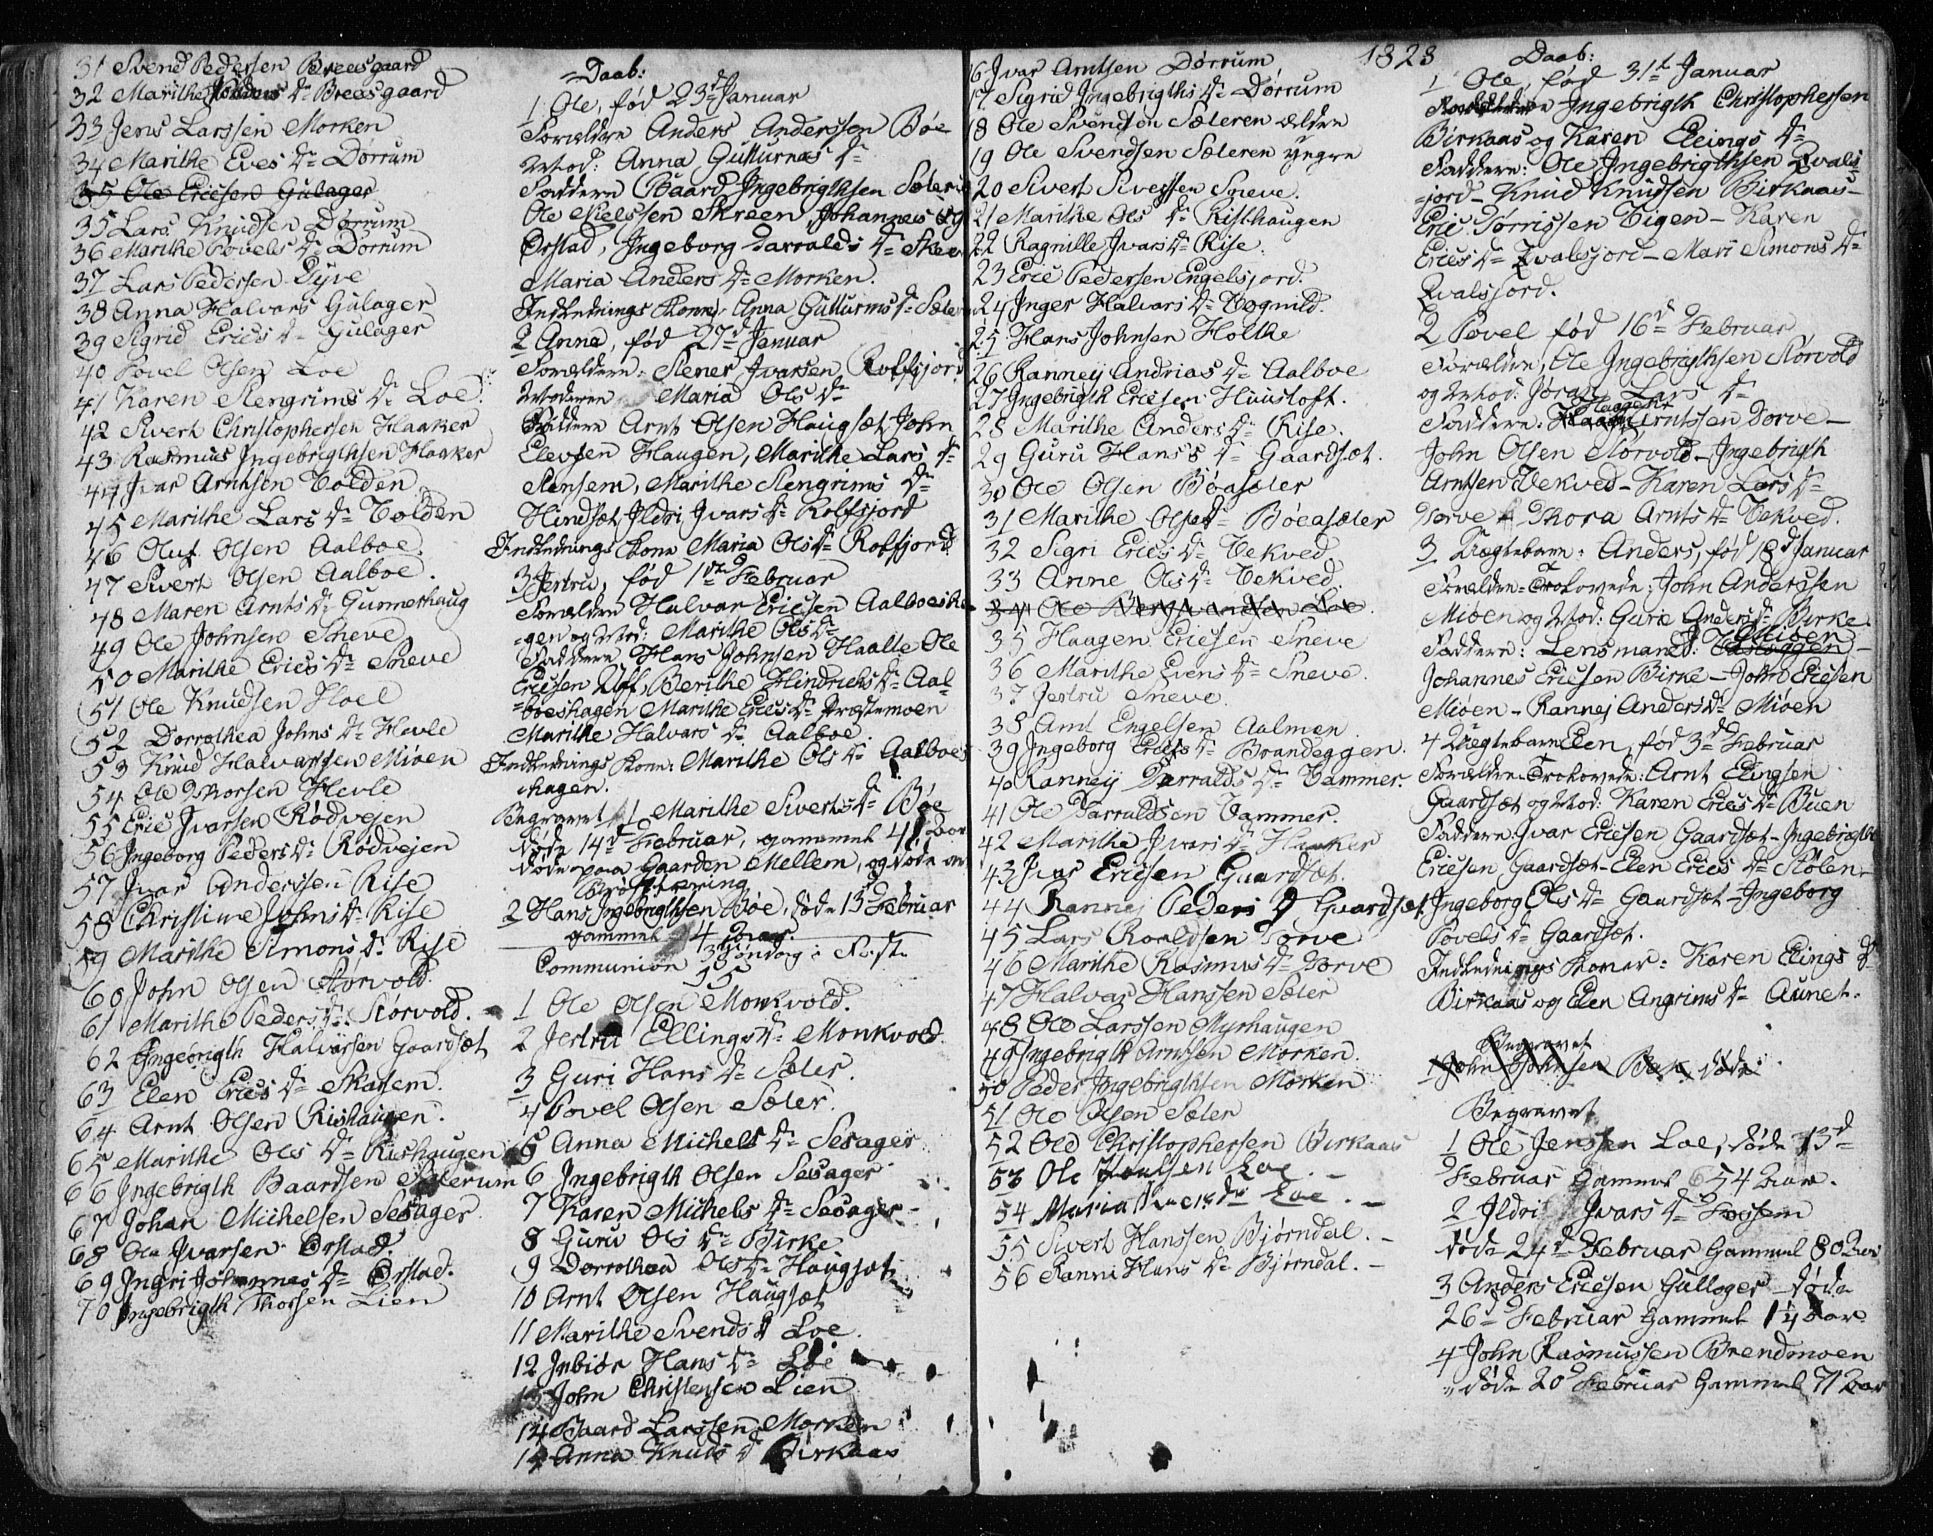 31 Svend Pedersen Breesgaard
32 Marithe Dr Breesgaard
33 Jens Larssen Morken
34 Marithe Eves Dr Dørrum
35 Ole Ericsen Gulager
35 Lars Knudsen Dørrum
36 Marithe Povels Dr Dorrum
37 Lars Pedersen Dyve
38 Anna Halvars Gulager
39 Sigrid Erics Dr Gulager
40 Povel Olsen Loe
41 Karen Stengrims Dr Loe.
42 Sivert Christophersen Haaker
43 Rasmus Ingebrigthsen Haaker
44 Ivar Arntsen Tolden
45 Marithe Lars Dr Tolden
46 Oluf Olsen Aalboe.
47 Sivert Olsen Aalboe.
48 Maren Arnts Dr Gunnerhaug
49 Ole Johnsen Sneve
50 Marithe Erics Dr Sneve
51 Ole Knudsen Hoel
52 Dorrothea Johns Dr Hevle
53 Knud Halvarssen Mioen
54 Ole Thorsen Hevle
55 Eric Ivarsen Rødvejen
56 Ingeborg Peders Dr Rødvejen
57 Ivar Anderssen Rise
58 Christine Johns Dr Rise
59 Marithe Simons Dr Rise
60 John Olsen Størvold
61 Marithe Peders Dr Størvold.
62 Ingebrigth Halvarsen Gaardsæt
63 Elen Erics Dr Skasem.
64 Arnt Olsen Rishaugen.
65 Marithe Ols Dr Rishaugen
66 Ingebrigth Baardsen Sæterum
67 Johan Michelsen Sesager
68 Ole Ivarsen Ørstad.
69 Ingri Johannes Dr Ørstad.
70 Ingebrigth Thorsen Lien
Daab:
1 Ole, fød 23d Januar
Forældre Anders Anderssen Bøe
Mod: Anna Gutturms Dr
Faddere Baard Ingebrigthsen Sæter
Ole Nielssen Skreen Johannes
Ørstad, Ingeborg Tarralds Dr Skre
Maria Anders Dr Morken.
Indlednings Kone: Anna Gutturms Dr Sæter
2 Anna, fød 27d Januar
Forældere: Stener Ivarsen, Rolfsjord
Moderen Maria Ols Dr
Faddere Arnt Olsen Haugsæt, John
Elevsen Haugen, Marithe Lars Dr
Stensem, Marithe Stengrims Dr
Hindsæt, Ildri Ivars Dr Rolfsjord
Indlednings Kone Maria Ols Dr Rolfsjord.
3 Jertru, fød 1de Februar
Forældre Halvar Ericsen Aalboesha
gen og Mod: Marithe Ols Dr
Faddere Hans Johnsen Haalte Ole
Ericsen Uff, Berithe Hindrichs Dr Aal-
boeshagen Marithe Erics Dr Præstemoen
Marithe Halvars Dr Aalboe.
Indlednings Kone: Marithe Ols Dr Aalboes
hagen.
Begravet 1 Marithe Siverts Dr Bøe
døde 14d Februar, gammel 41 Aar
døde paa Gaarden Mellem, og døde
2 Hans Ingebrigthsen Bøe, døde 13 Februar
gammel 4 Aar.
Communion 3 Søndag i Faste
55
1 Ole Olsen Monkvold.
2 Jertru Ellings Dr Monkvold.
3 Guri Hans Dr Sæter
4 Povel Olsen Sæter.
5 Anna Michels Dr Sesager
6 Ingebrigth Olsen Sesager
7 Karen Michels Dr Sesager
8 Guru Ols Dr Birke
9 Dorrothea Ols Dr Haugsæt
10 Arnt Olsen Haugsæt
11 Marithe Svends D Loe.
12 Inbiør Hans Dr Loe
13 John Christensen Lien
14 Baard Larssen Morken
14 Anna Knuds D Birkaas
16 Ivar Arntsen Dørrum
17 Sigrid Ingebrigths Dr Dørrum
18 Ole Svendsen Sæteren ældre
19 Ole Svendsen Sæteren yngre
20 Sivert Siverssen Sneve.
21 Marithe Ols Dr Risthaugen
22 Ragnille Ivars Dr Rise
23 Eric Pedersen Engelsjord.
24 Inger Halvars Dr Vognild.
25 Hans Johnsen Holthe
26 Rannej Andrias Dr Aalboe
27 Ingebrigth Ericsen Huusloft.
28 Marithe Anders Dr Rise.
29 Guru Hans Dr Gaardsæt.
30 Ole Olsen Bøasæter
31 Marithe Olset Bøeasæter
32 Sigri Erics Dr Vekved.
33 Anne Ols Dr Vekved.
34 Ole Loe.
35 Haagen Ericsen Sneve
36 Marithe Evens Dr Sneve.
37 Jertru Sneve.
38 Arnt Engelsen Aalmen
39 Ingeborg Erics Dr Brandeggen.
40 Rannej Tarralds Dr Vammer.
41 Ole Tarraldsen Vammer.
42 Marithe Ivars Dr Haaker
43 Ivar Ericsen Gaardsæt.
44 Rannej Peders D Gaardsæt
45 Lars Roaldsen Dorve
46 Marithe Rasmus Dr Dorve
47 Halvar Hanssen Sæter
48 Ole Larssen Myrhaugen
49 Ingebrigth Arntsen Morken.
50 Peder Ingebrigthsen Morken
51 Ole Olsen Sæter
52 Ole Christophersen Birkaas
53 Ole Loe
54 Maria Loe.
55 Sivert Hanssen Bjørndal.
56 Ranni Hans Dr Bjørndal.
1828
Daab:
1 Ole, fød 31d Januar
Forældre Ingebrigth Christophersen
Birkaas og Karen Elings Dr
Faddere: Ole Ingebrigthsen Qvals
jord - Knud Knudsen Birkaas -
Eric Torrissen Vigen - Karen
Erics Dr Qvalsjord - Mari Simons Dr
Qvalsjord.
2 Povel fød 16d Februar
Forældre, Ole Ingebrigthsen Størvold
og Mod: Joran Lars Dr
Faddere: Haagen Arntssen Dorve -
John Olsen Storvold - Ingebrigth
Arntsen Vekved - Karen Lars Dr
Dorve - Thora Arnts Dr Vekved.
3 Ægtebarn: Anders, fød 18d Januar
Forældre Trolovede: John Anderssen
Mioen og Mod: Guru Anders Dr Birke
Faddere: Lensmand: Mioen -
Johannes Ericsen Birke - John Ericsen
Mioen - Rannej Anders Dr Mioen
4 Uægtebarn Elen, fød 3d Februar
Forældre Trolovede: Arnt Elingsen
Gaardsæt og Mod: Karen Erics Dr Buen
Faddere: Ivar Ericsen Gaardsæt - Ingebrigth
Ericsen Gaardsæt - Elen Erics Dr Stølen -
Ingeborg Ols Dr Gaardsæt - Ingeborg
Povels Dr Gaardsæt.
Indlednings Koner: Karen Elings D
Birkaas og Elen Angrims Dr Aunet.
Begravet
1 John Johnsen døde
Begravet
1 Ole Jenssen Loe, døde 13d
Februar Gammel 54 Aar.
2 Ildri Ivars Dr Fossem
døde 24d Februar Gammel 80 Aar
3 Anders Ericsen Gullager døde
26d Februar Gammel 1¼ Aar
4 John Rasmussen Brendmoen
døde 20d Februar Gammel 71 Aar